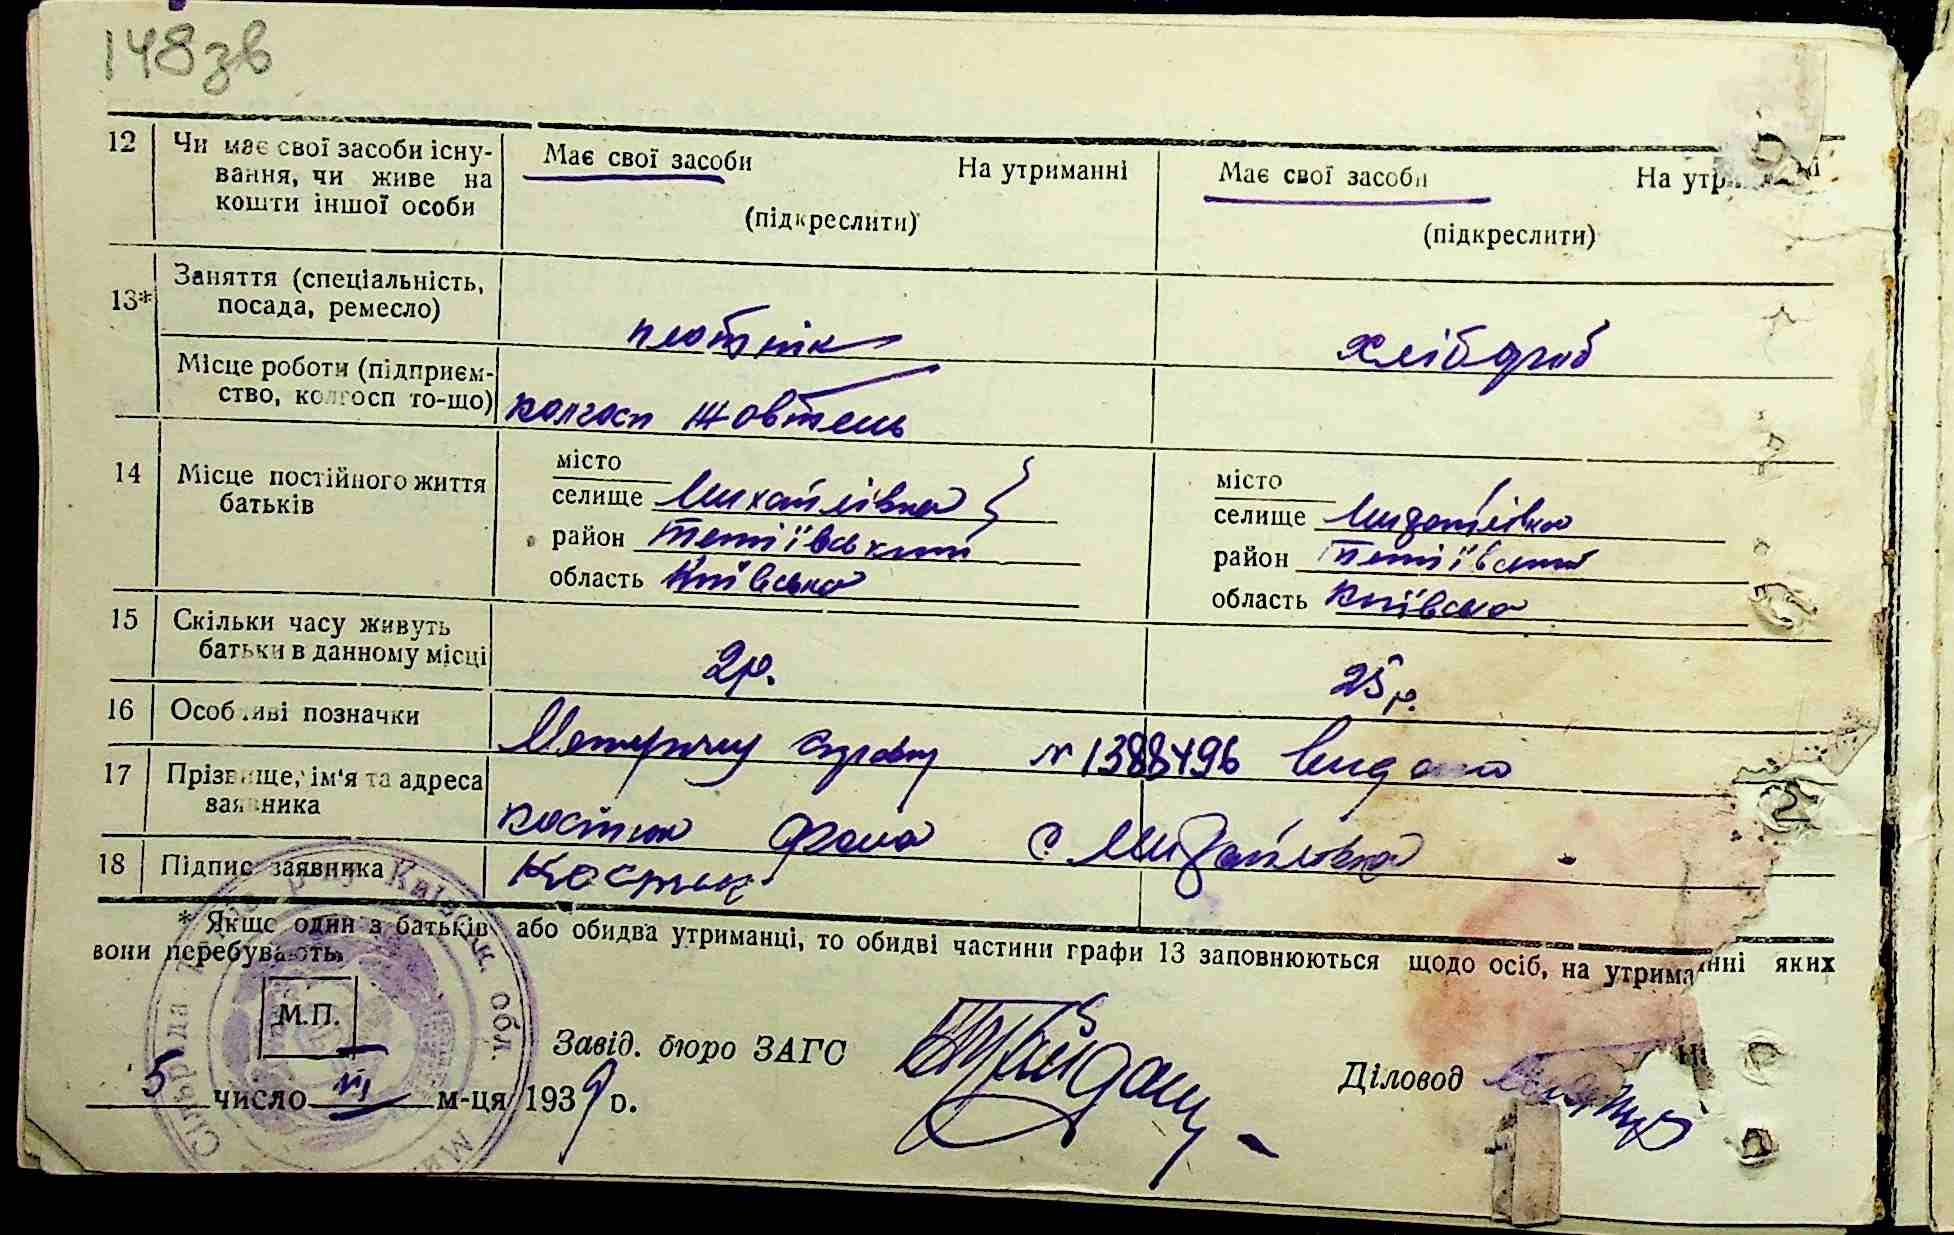 148зв
12 Чи має свої засоби існу-
вання, чи живе на
кошти іншої особи
Має свої засоби На утриманні
(підкреслити)
Має свої засоби На утриманні
(підкреслити)
13* Заняття (спеціальність,
посада, ремесло)
плотнік
хлібороб
Місце роботи (підприєм-
ство, колгосп то-що)
колгосп Жовтень
14 Місце постійного життя
батьків
місто
селище Михайлівка
район Тетіївський
область Київська
місто
селище Михайлівка
район Тетіївський
область Київська
15 Скільки часу живуть
батьки в данному місці
2р.
25р.
16 Особливі позначки
N 1388496 видано
17 Прізвище, ім'я та адреса
заявника
Костюк с Михайлівка
18 Підпис заявника
Костюк
* Якщо один з батьків або обидва утриманці, то обидві частини графи 13 заповнюються щодо осіб, на утриманні яких
вони перебувають.
М.П.
Завід. бюро ЗАГС
Діловод
5 число III м-ця 1939 р.